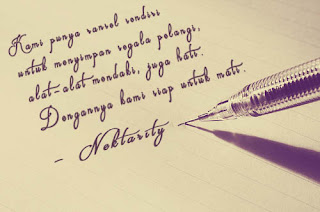 Kami punya ransel sendiri
untuk menyimpan segala pelangi,
alat-alat mendaki, juga hati.
Dengannya kami siap untuk mati.
- Nektarity -